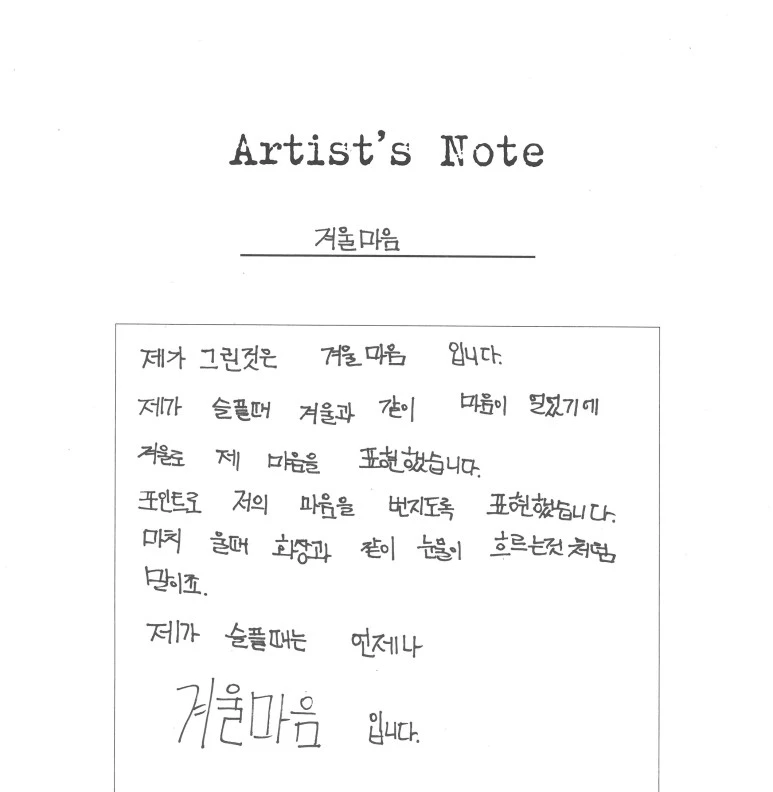 Artist's Note
겨울마음
제가 그린것은 겨울마음 입니다.
제가 슬플때 겨울과 같이 마음이 얼었기에
겨울로 제 마음을 표현했습니다.
포인트로 저의 마음을 번지도록 표현했습니다.
마치 울때 화장과 같이 눈물이 흐르는것 처럼
말이죠.
제가 슬플때는 언제나
겨울마음 입니다.